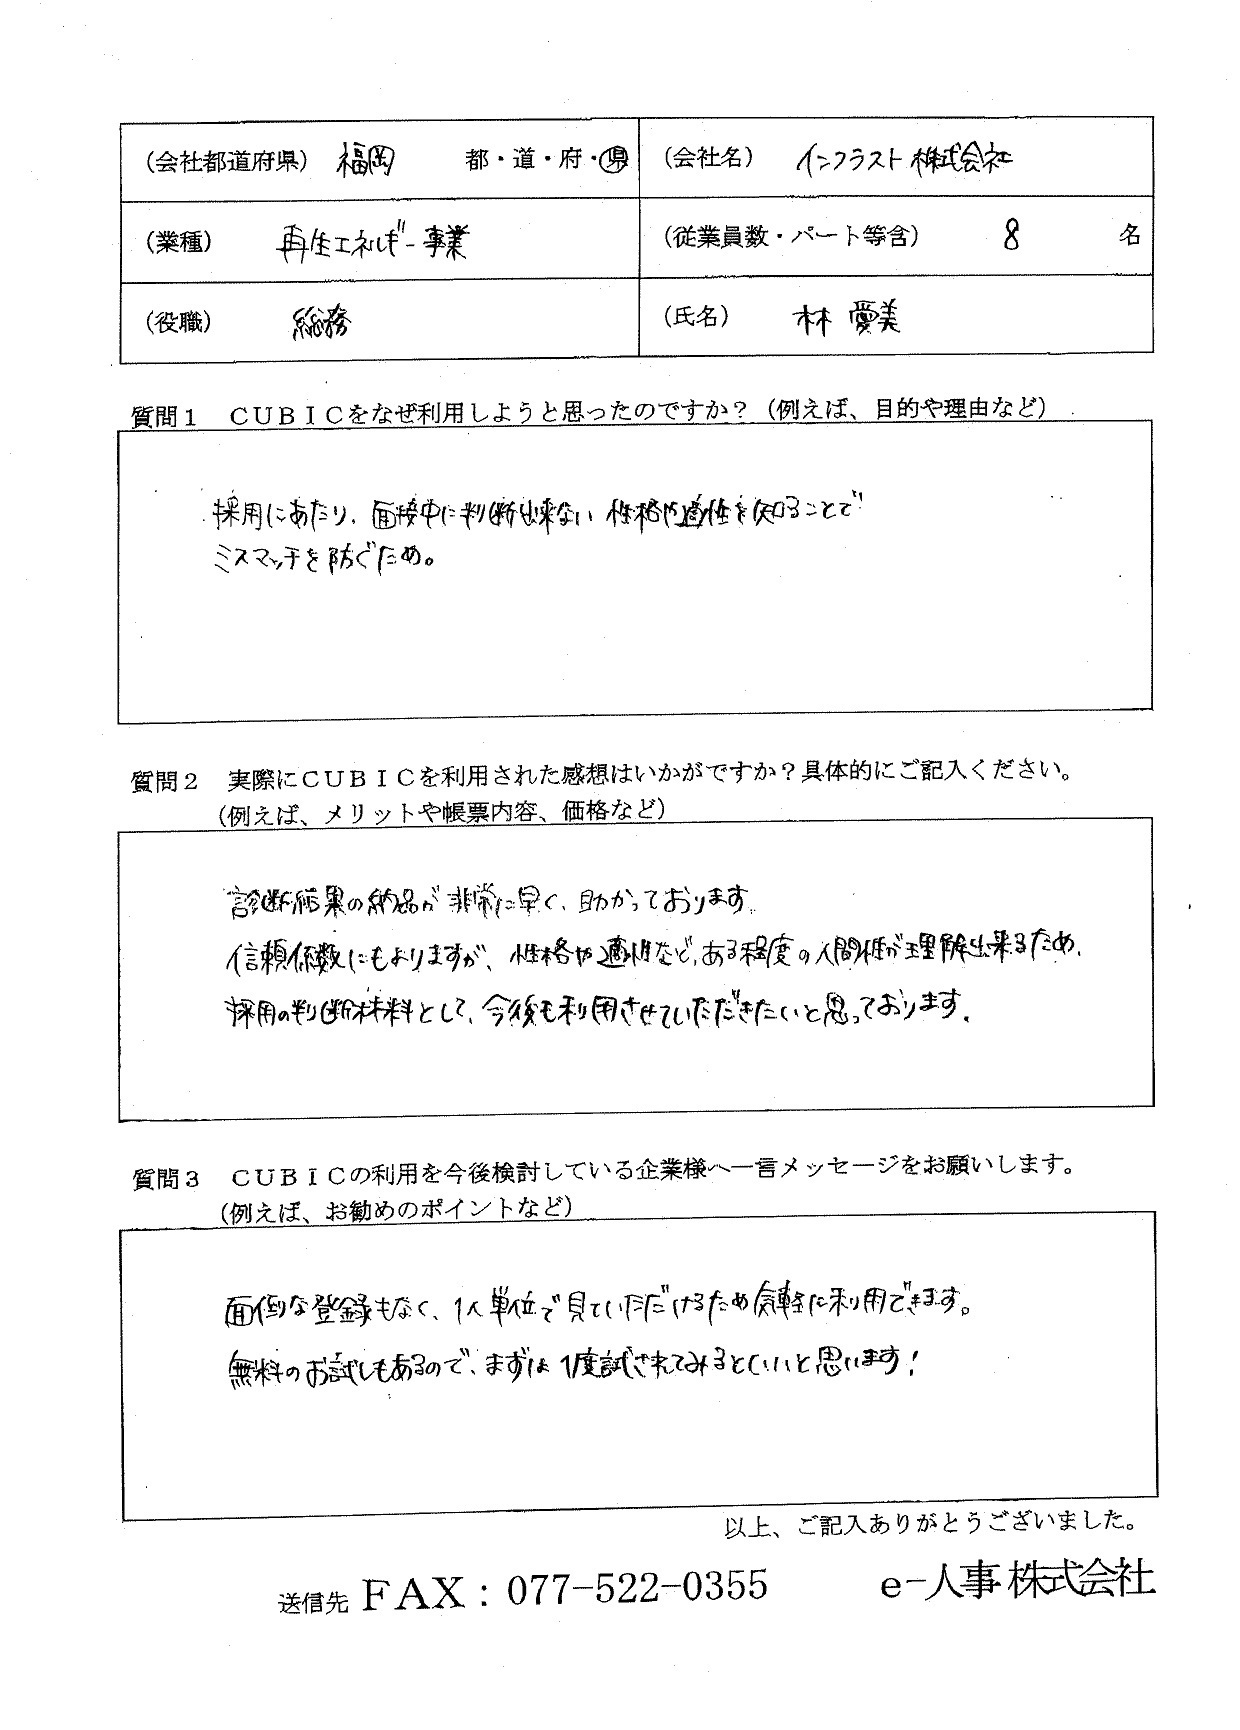 (会社都道府県) 福岡 都・道・府・県
(会社名) インフラスト株式会社
(業種) 再生エネルギー事業
(従業員数・パート等含) 8 名
(役職) 総務
(氏名) 林 愛美
質問1 CUBICをなぜ利用しようと思ったのですか?(例えば、目的や理由など)
採用にあたり、面接中に判断出来ない性格や適性を知ることで
ミスマッチを防ぐため。
質問2 実際にCUBICを利用された感想はいかがですか?具体的にご記入ください。
(例えば、メリットや帳票内容、価格など)
診断結果の納品が非常に早く、助かっております。
信頼係数にもよりますが、性格や適性など、ある程度の人間性が理解出来るため、
採用の判断材料として、今後も利用させていただきたいと思っております。
質問3 CUBICの利用を今後検討している企業様へ一言メッセージをお願いします。
(例えば、お勧めのポイントなど)
面倒な登録もなく、1人単位で見ていただけるため気軽に利用できます。
無料のお試しもあるので、まずは1度試されてみるといいと思います!
以上、ご記入ありがとうございました。
送信先 FAX:077-522-0355 e-人事株式会社